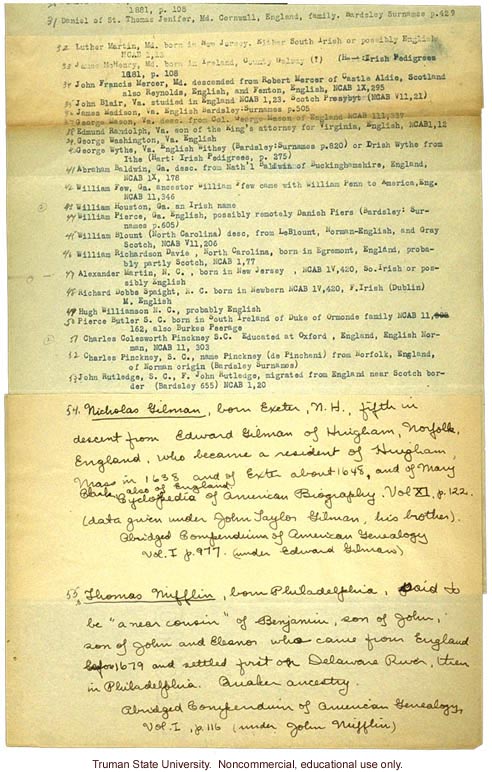 1881, p. 108
31 Daniel of St. Thomas Jenifer, Md. Cornwall, England, family. Bardsley Surnames p.429
32 Luther Martin, Md. born in New Jersey. Either South Irish or possibly English
NCAB 1,13
33 James McHenry, Md. born in Ireland, County Galway (?) Irish Pedigrees
1881, p. 108
34 John Francis Mercer, Md. descended from Robert Mercer of Castle Aldie, Scotland
also Reynolds, English, and Fenton, English, NCAB IX,295
35 John Blair, Va. studied in England NCAB 1,23. Scotch Presbyt (NCAB V11,21)
36 James Madison, Va. English Bardsley:Surnames p.505
37 George Mason, Va. desc. from Col. George Mason of England NCAB 111,337
38 Edmund Randolph, Va. son of the King's attorney for Virginia, English, NCAB1,12
39 George Washington, Va. English
40 George Wythe, Va. English Withey (Bardsley:Surnames p.820) or Irish Wythe from
Ithe (Hart: Irish Pedigrees, p. 275)
41 Abraham Baldwin, Ga. desc. from Nath'l Baldwin of Buckinghamshire, England,
NCAB IX, 178
42 William Few, Ga. ancestor William Few came with William Penn to America,Eng.
NCAB 11,346
43 William Houston, Ga. an Irish name
44 William Pierce, Ga. English, possibly remotely Danish Piers (Bardsley: Sur-
names p.605)
45 William Blount (North Carolina) desc, from LeBlount, Norman-English, and Gray
Scotch, NCAB V11,206
46 William Richardson Davie , North Carolina, born in Egremont, England, proba-
bly partly Scotch, NCAB 1,77
47 Alexander Martin, N. C. , born in New Jersey , NCAB 1V,420, So.Irish or pos-
sibly English
48 Richard Dobbs Spaight, N. C. born in Newbern NCAB 1V,420, F.Irish (Dublin)
M. English
49 Hugh Williamson N. C., probably English
50 Pierce Butler S. C. born in South Ireland of Duke of Ormonde family NCAB 11,
162, also Burkes Peerage
51 Charles Colesworth Pinckney S.C. Educated at Oxford , England, English Nor-
man, NCAB 11, 303
52 Charles Pinckney, S. C., name Pinckney (de Pincheni) from Norfolk, England,
of Norman origin (Bardsley Surnames)
53 John Rutledge, S. C., F. John Rutledge, migrated from England near Scotch bor-
der (Bardsley 655) NCAB 1,20
54. Nicholas Gilman, born Exeter, N.H., fifth in
descent from Edward Gilman of Hingham, Norfolk,
England, who became a resident of Hingham,
Mass in 1638 and of Exter about 1648, and of Mary
Clark, also of England.
Cyclopædia of American Biography. Vol XI, p. 122.
(data given under John Taylor Gilman, his brother).
Abridged Compendium of American Genealogy
Vol. I p. 977. (under Edward Gilman)
55. Thomas Mifflin, born Philadelphia, said to
be "a near cousin" of Benjamin, son of John,
son of John and Eleanor who came from England
before 1679 and settled first on Delaware River, then
in Philadelphia. Quaker ancestry.
Abridged Compendium of American Genealogy,
Vol. I, p. 116 (under John Mifflin)
Truman State University. Noncommercial, educational use only.